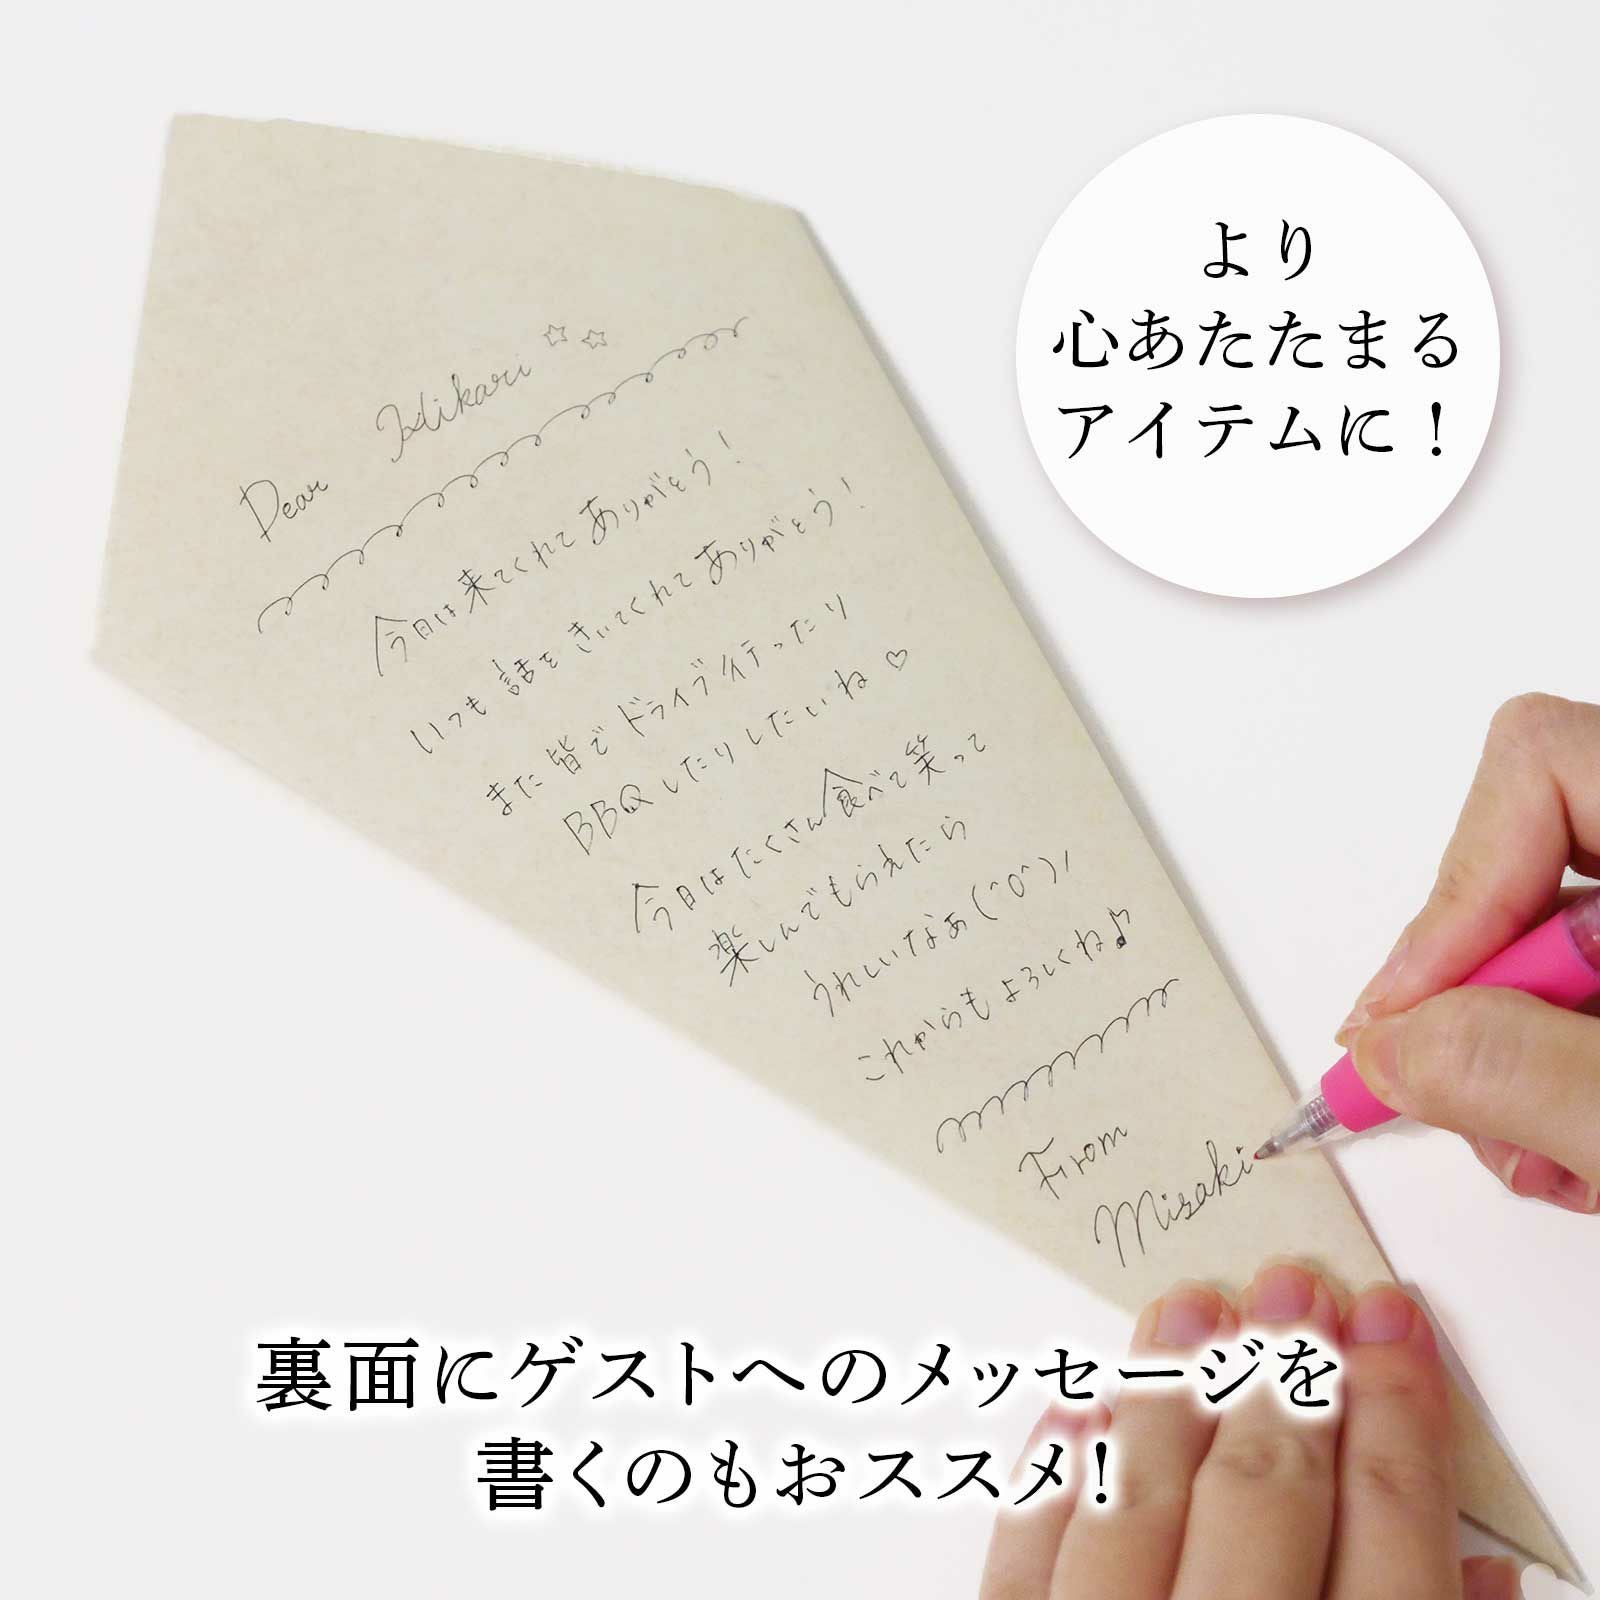 より
心あたたまる
アイテムに！
Dear Hikari ☆☆
今日は来てくれてありがとう！
いつも話をきいてくれてありがとう！
また皆でドライブ行ったり
BBQしたりしたいね♡
今日はたくさん食べて笑って
楽しんでもらえたら
うれしいなあ(^O^)ﾉ
これからもよろしくね♪
From
Misaki
裏面にゲストへのメッセージを
書くのもおススメ！